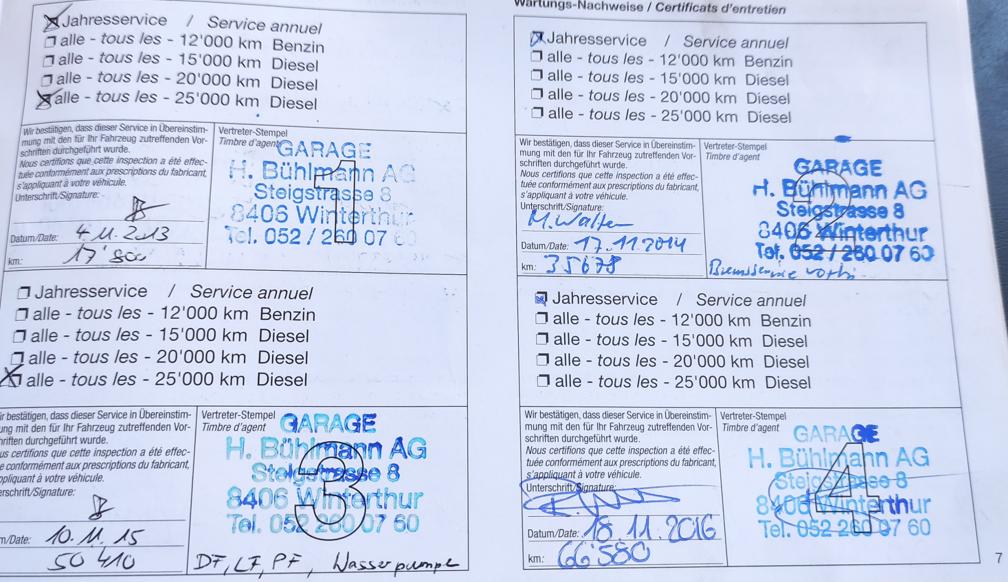 Jahresservice / Service annuel
alle - tous les - 12'000 km Benzin
alle - tous les - 15'000 km Diesel
alle - tous les - 20'000 km Diesel
alle - tous les - 25'000 km Diesel
Wir bestätigen, dass dieser Service in Übereinstim-
mung mit den für Ihr Fahrzeug zutreffenden Vor-
schriften durchgeführt wurde.
Nous certifions que cette inspection a été effec-
tuée conformément aux prescriptions du fabricant,
s'appliquant à votre véhicule.
Unterschrift/Signature:
Datum/Date: 4.11.2013
km: 17'800
Vertreter-Stempel
Timbre d'agent
GARAGE
H. Bühlmann AG
Steigstrasse 8
8406 Winterthur
Tel. 052 / 260 07 60
1
Jahresservice / Service annuel
alle - tous les - 12'000 km Benzin
alle - tous les - 15'000 km Diesel
alle - tous les - 20'000 km Diesel
alle - tous les - 25'000 km Diesel
ir bestätigen, dass dieser Service in Übereinstim-
ung mit den für Ihr Fahrzeug zutreffenden Vor-
hriften durchgeführt wurde.
us certifions que cette inspection a été effec-
e conformément aux prescriptions du fabricant,
ppliquant à votre véhicule.
erschrift/Signature:
m/Date: 10.11.15
50 410
Vertreter-Stempel
Timbre d'agent
GARAGE
H. Bühlmann AG
Steigstrasse 8
8406 Winterthur
Tel. 052 260 07 60
3
DF, LF, PF, Wasserpumpe
Wartungs-Nachweise / Certificats d'entretien
Jahresservice / Service annuel
alle - tous les - 12'000 km Benzin
alle - tous les - 15'000 km Diesel
alle - tous les - 20'000 km Diesel
alle - tous les - 25'000 km Diesel
Wir bestätigen, dass dieser Service in Übereinstim-
mung mit den für Ihr Fahrzeug zutreffenden Vor-
schriften durchgeführt wurde.
Nous certifions que cette inspection a été effec-
tuée conformément aux prescriptions du fabricant,
s'appliquant à votre véhicule.
Unterschrift/Signature:
M. Walter
Datum/Date: 17.11.2014
km: 35678
Vertreter-Stempel
Timbre d'agent
GARAGE
H. Bühlmann AG
Steigstrasse 8
8406 Winterthur
Tel. 052 / 260 07 60
2
Jahresservice / Service annuel
alle - tous les - 12'000 km Benzin
alle - tous les - 15'000 km Diesel
alle - tous les - 20'000 km Diesel
alle - tous les - 25'000 km Diesel
Wir bestätigen, dass dieser Service in Übereinstim-
mung mit den für Ihr Fahrzeug zutreffenden Vor-
schriften durchgeführt wurde.
Nous certifions que cette inspection a été effec-
tuée conformément aux prescriptions du fabricant,
s'appliquant à votre véhicule.
Unterschrift/Signature:
Datum/Date: 18.11.2016
km: 66'580
Vertreter-Stempel
Timbre d'agent
GARAGE
H. Bühlmann AG
Steigstrasse 8
8406 Winterthur
Tel. 052 260 07 60
4
7